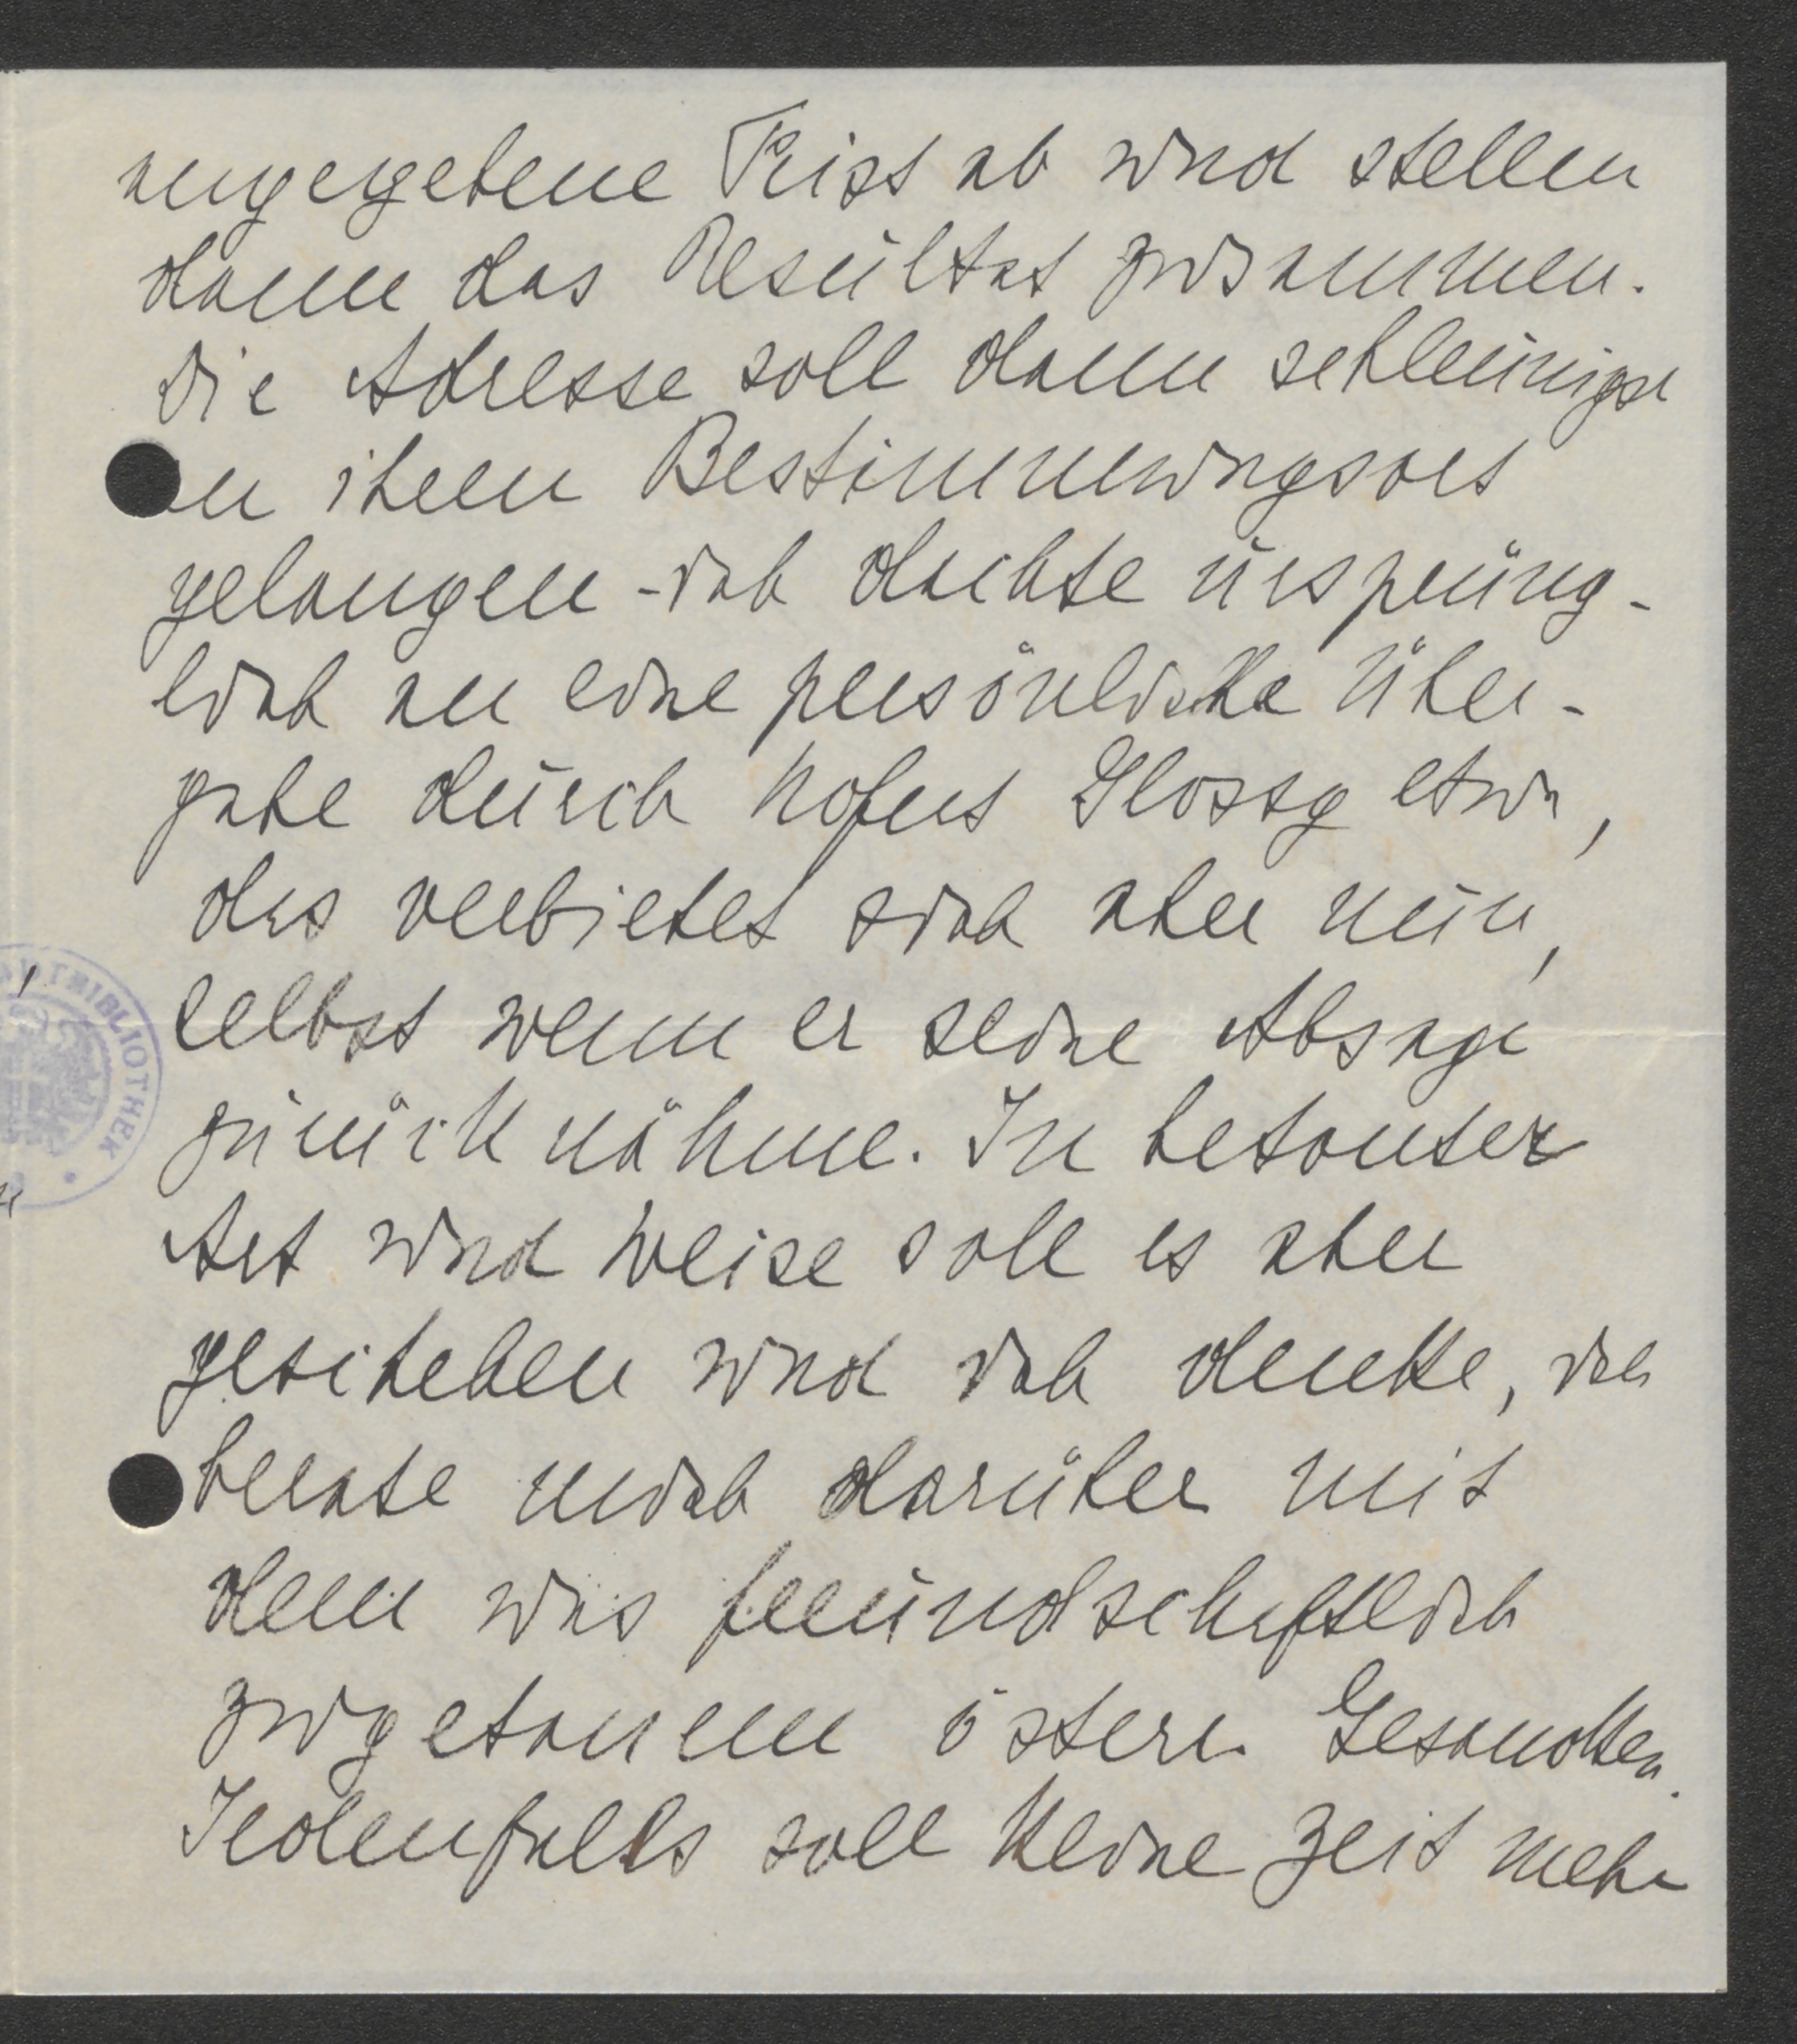 angegebene Frist ab und stellen
dann das Resultat zusammen.
Die Adresse soll dann schleunigst
an ihren Bestimmungsort
gelangen - ich dachte ursprüng-
lich an eine persönliche Über-
gabe durch Hofrat Glossy etwa,
das verbietet sich aber nun,
selbst wenn er seine Absage
zurücknähme. In betonter
Art und Weise soll es aber
geschehen und ich denke, ich
berate mich darüber mit
dem uns freundschaftlich
zugetanen österr. Gesandten.
Jedenfalls soll keine Zeit mehr
BIBLIOTHEK